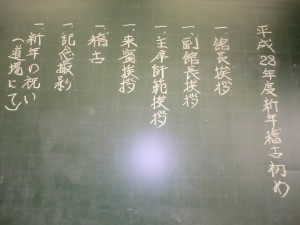 平成28年度新年稽古初め
一.館長挨拶
一.副館長挨拶
一.主席師範挨拶
一.来賓挨拶
一.稽古
一.記念撮影
一.新年の祝い
(道場にて)